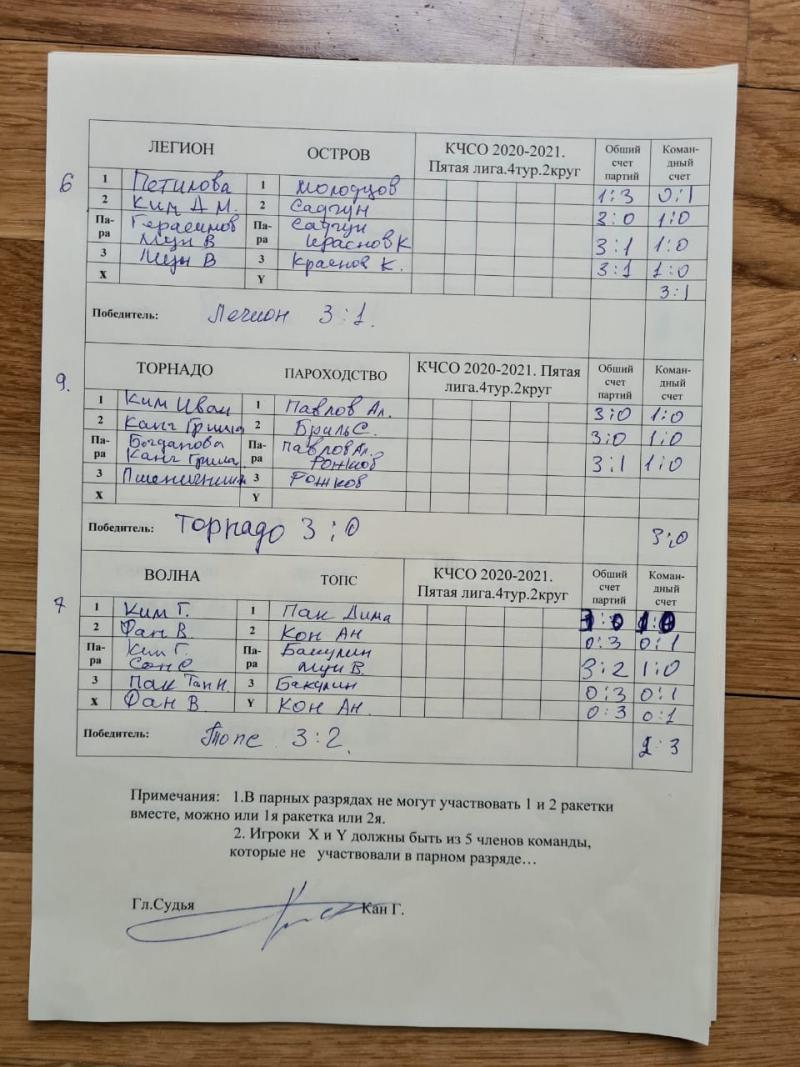 ЛЕГИОН ОСТРОВ КЧСО 2020-2021. Пятая лига.4тур.2круг Обший счет партий Коман-дный счет
6 1 Петилова 1 Молодцов 1:3 0:1
2 Ким Д М. 2 Садчун 3:0 1:0
Па-ра Герасимов Па-ра Садчун
Мун В Краснов К 3:1 1:0
3 Мун В 3 Краснов К. 3:1 1:0
X Y 3:1
Победитель: Легион 3:1.
9. ТОРНАДО ПАРОХОДСТВО КЧСО 2020-2021. Пятая лига.4тур.2круг Обший счет партий Коман-дный счет
1 Ким Иван 1 Павлов Ал. 3:0 1:0
2 Канг Гриша 2 Бриль С. 3:0 1:0
Па-ра Богданова Па-ра Павлов Ал.
Канг Гриша Рожков 3:1 1:0
3 3 Рожков
X Y
Победитель: Торнадо 3:0 3:0
7 ВОЛНА ТОПС КЧСО 2020-2021. Пятая лига.4тур.2круг Обший счет партий Коман-дный счет
1 Ким Г. 1 Пак Дима 3:0 1:0
2 Фан В. 2 Кон Ан 0:3 0:1
Па-ра Ким Г. Па-ра Бакулин
Сон Е Мун В. 3:2 1:0
3 Пак Тап Н. 3 Бакулин 0:3 0:1
X Фан В Y Кон Ан. 0:3 0:1
Победитель: Топс 3:2. 2:3
Примечания: 1.В парных разрядах не могут участвовать 1 и 2 ракетки
вместе, можно или 1я ракетка или 2я.
2. Игроки X и Y должны быть из 5 членов команды,
которые не участвовали в парном разряде…
Гл.Судья Кан Г.